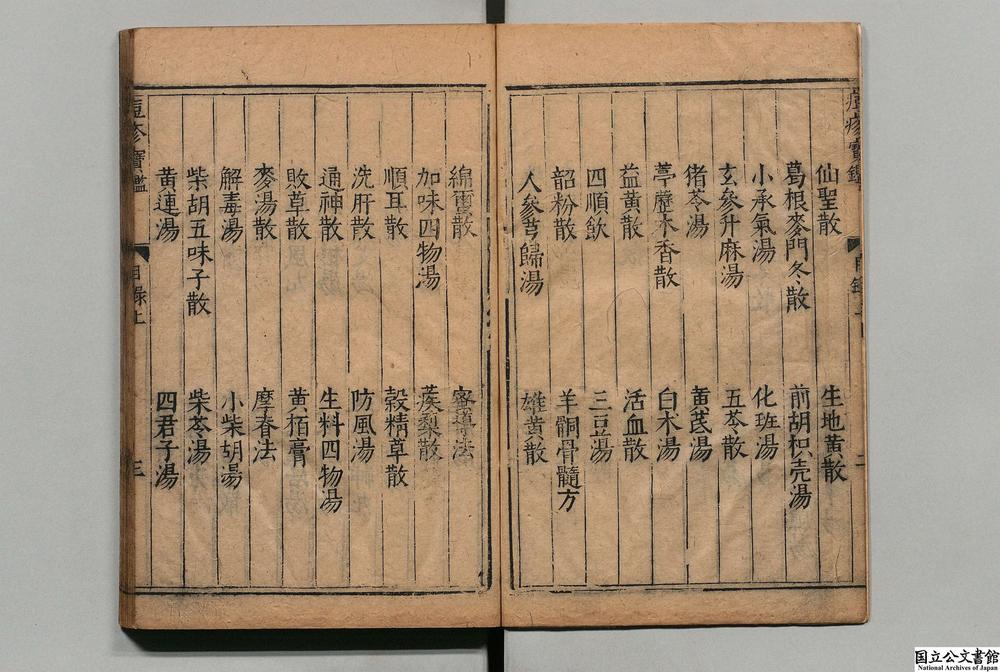 痘疹寶鑑
目錄上
二
仙聖散
生地黃散
葛根麥門冬散
前胡枳壳湯
小承氣湯
化班湯
玄參升麻湯
五苓散
猪苓湯
黃芪湯
葶藶木香散
白朮湯
益黃散
活血散
四順飲
三豆湯
韶粉散
羊䯊骨髓方
人參芎歸湯
雄黃散
綿繭散
密導法
加味四物湯
蒺梨散
順耳散
穀精草散
洗肝散
防風湯
通神散
生料四物湯
敗草散
黃栢膏
麥湯散
摩脊法
解毒湯
小柴胡湯
柴胡五味子散
柴苓湯
黃連湯
四君子湯
痘疹寶鑑
目錄上
三
国立公文書館
National Archives of Japan